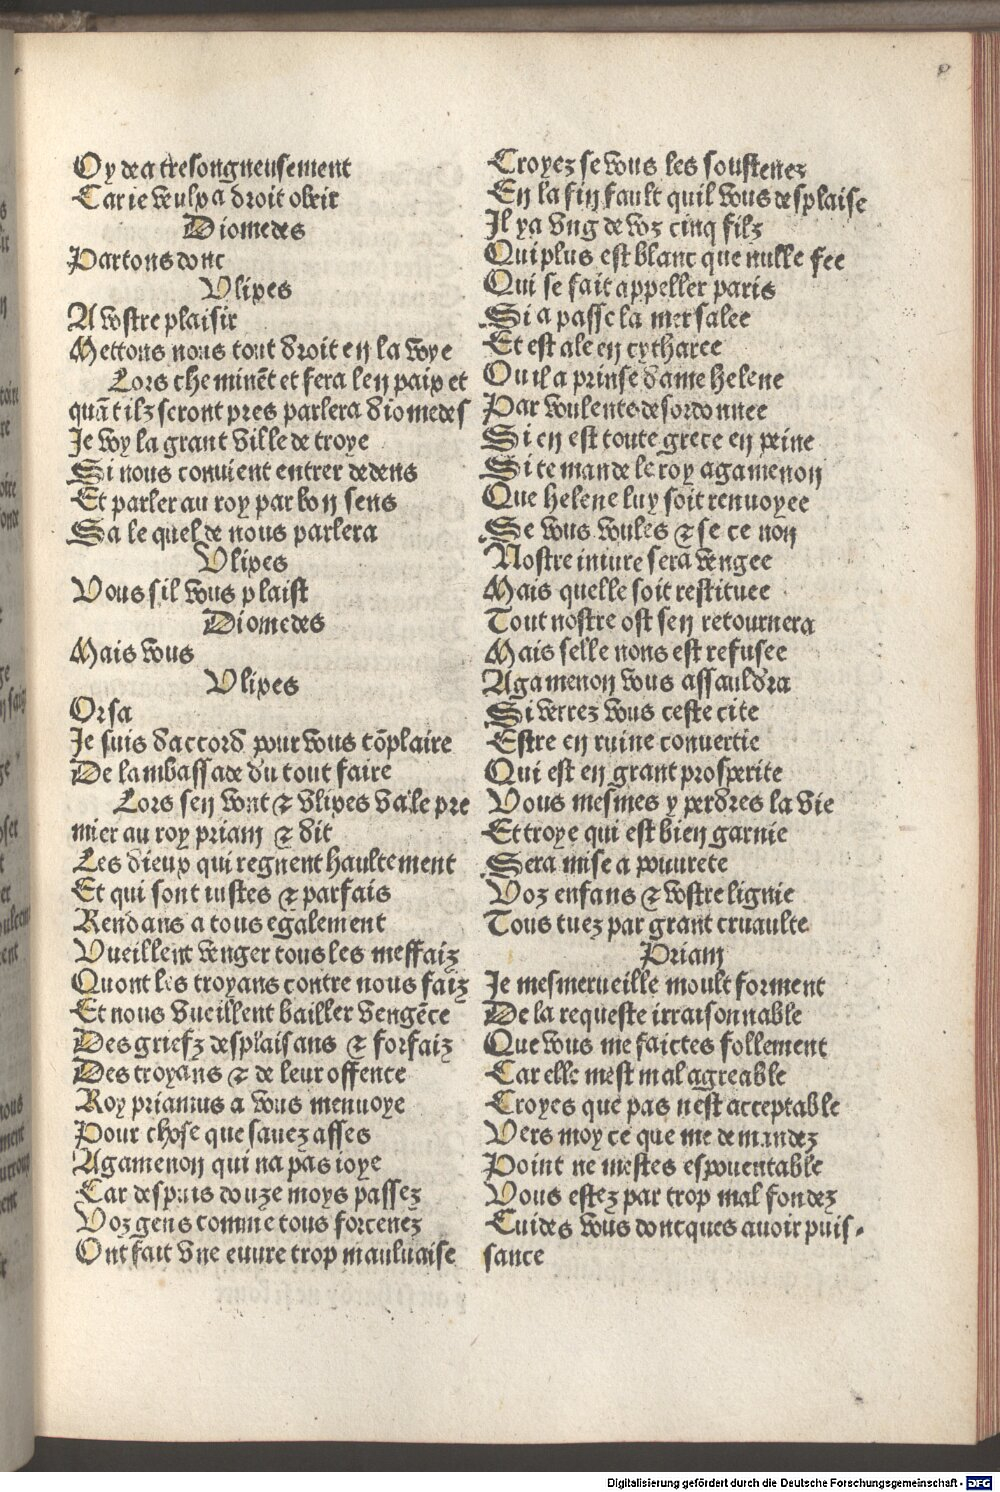 Oy dea tresongneusement
Car ie veulx a droit obeir
Diomedes
Partons donc
Vlixes
A vostre plaisir
Mettons nous tout droit en la voye
Lors cheminēt et fera len paix et
quāt ilz seront pres parlera diomedes
Je voy la grant ville de troye
Si nous conuient entrer dedens
Et parler au roy par bon sens
Sa le quel de nous parlera
Vlixes
Vous sil vous plaist
Diomedes
Mais vous
Vlixes
Orsa
Je suis daccord pour vous cōplaire
De lambassade du tout faire
Lors sen vont & vlixes va le pre
mier au roy priam & dit
Les dieux qui regnent haultement
Et qui sont iustes & parfais
Rendans a tous egalement
Vueillent venger tous les meffaiz
Quont les troyans contre nous faiz
Et nous vueillent bailler vengēce
Des griefz desplaisans & forfaiz
Des troyans & de leur offence
Roy priamus a vous menuoye
Pour chose que sauez asses
Agamenon qui na pas ioye
Car despuis douze moys passez
Voz gens comme tous forcenez
Ont fait vne euure trop mauluaise
Croyez se vous les soustenez
En la fin fault quil vous desplaise
Il ya vng de voz cinq filz
Qui plus est blanc que nulle fee
Qui se fait appeller paris
Si a passe la mer salee
Et est ale en cytharee
Ou il a prinse dame helene
Par voulente desordonnee
Si en est toute grece en peine
Si te mande le roy agamenon
Que helene luy soit renuoyee
Se vous voules & se ce non
Nostre iniure sera vengee
Mais quelle soit restituee
Tout nostre ost sen retournera
Mais selle nons est refusee
Agamenon vous assauldra
Si verrez vous ceste cite
Estre en ruine conuertie
Qui est en grant prosperite
Vous mesmes y perdres la vie
Et troye qui est bien garnie
Sera mise a pouurete
Voz enfans & vostre lignie
Tous tuez par grant cruaulte
Priam
Je mesmerueille moult forment
De la requeste irraisonnable
Que vous me faictes follement
Car elle mest mal agreable
Croyes que pas nest acceptable
Vers moy ce que me demandez
Point ne mestes espouentable
Vous estez par trop mal fondez
Cuides vous doncques auoir puis-
sance
Digitalisierung gefördert durch die Deutsche Forschungsgemeinschaft - DFG